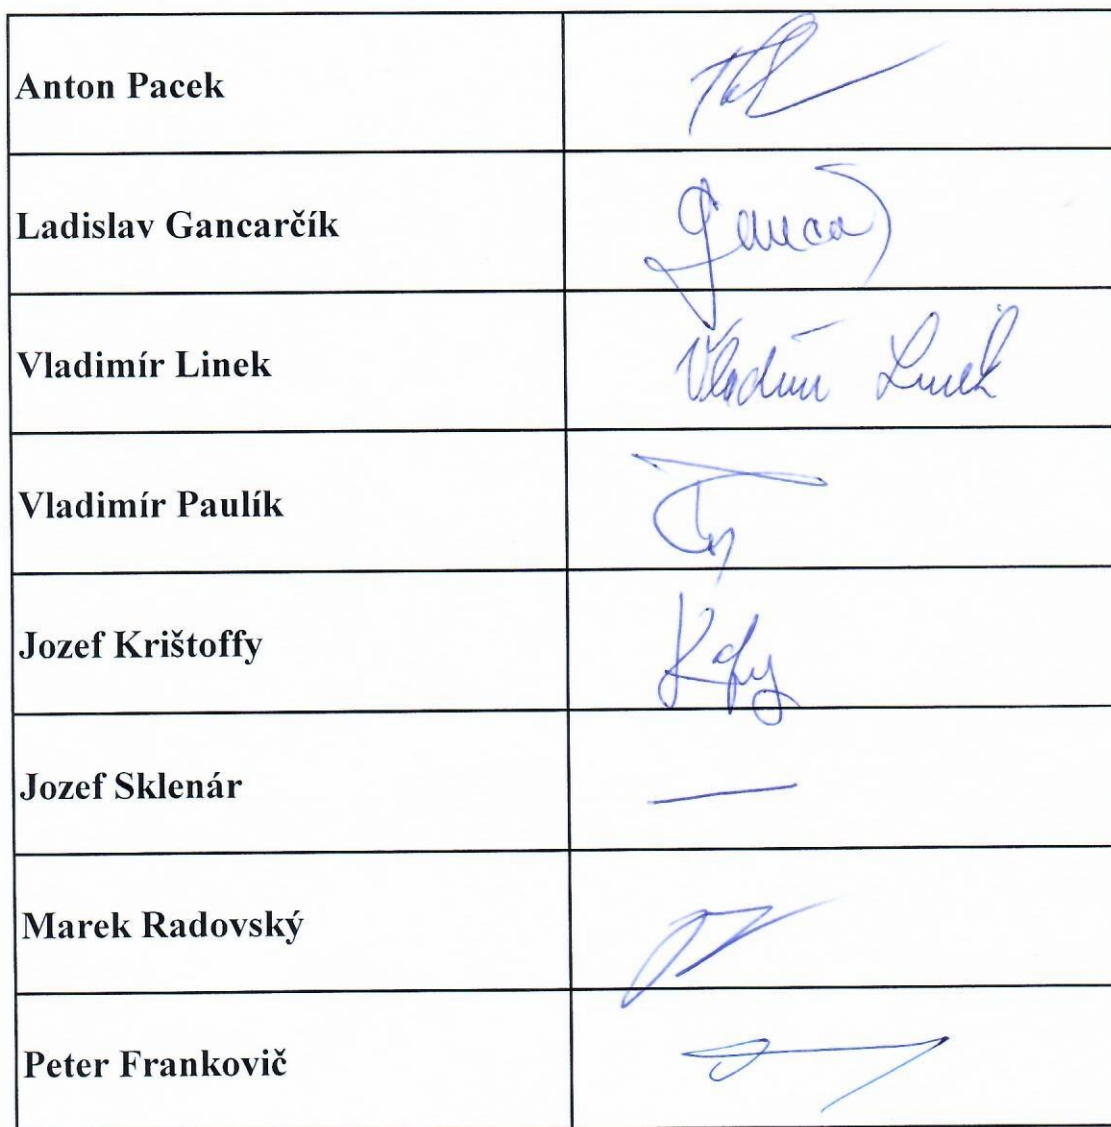 Anton Pacek
Ladislav Gancarčík
Vladimír Linek
Vladimír Linek
Vladimír Paulík
Jozef Krištoffy
Jozef Sklenár
—
Marek Radovský
Peter Frankovič